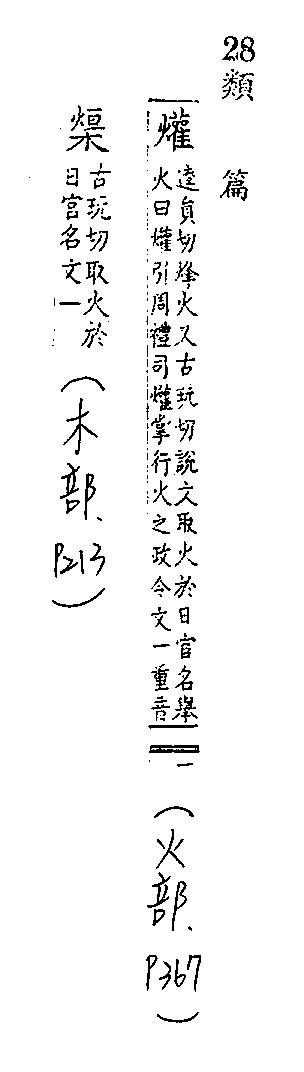 28類篇
爟逵負切烽火又古玩切說文取火於日官名舉
火曰爟引周禮司爟掌行火之政令文一重音
一
(火部、P367)
古玩切取火於
日官名文一
(木部、P213)